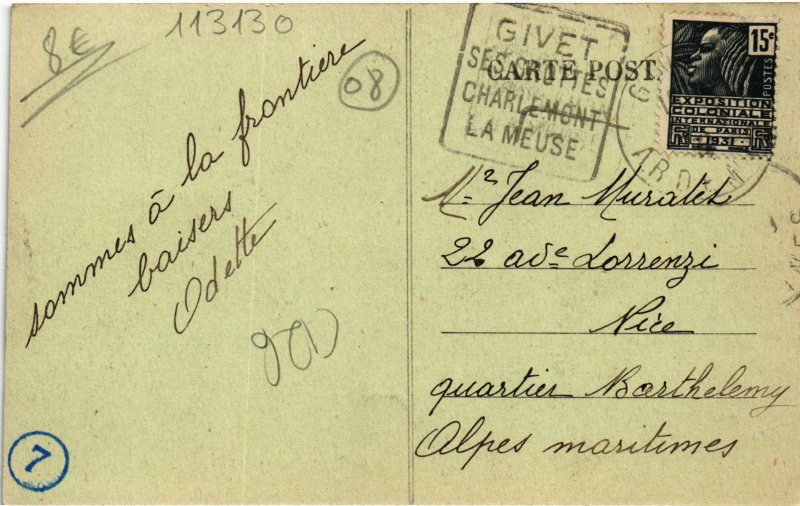 8€
113130
08
GIVET
SES GROTTES
CHARLEMONT
LA MEUSE
CARTE POST
15c
POSTES
EXPOSITION
COLONIALE
INTERNATIONALE
DE PARIS
1931
sommes à la frontiere
baisers
Odette
Mr Jean Muratet
22 ave Lorrenzi
Nice
quartier Barthelemy
Alpes maritimes
7